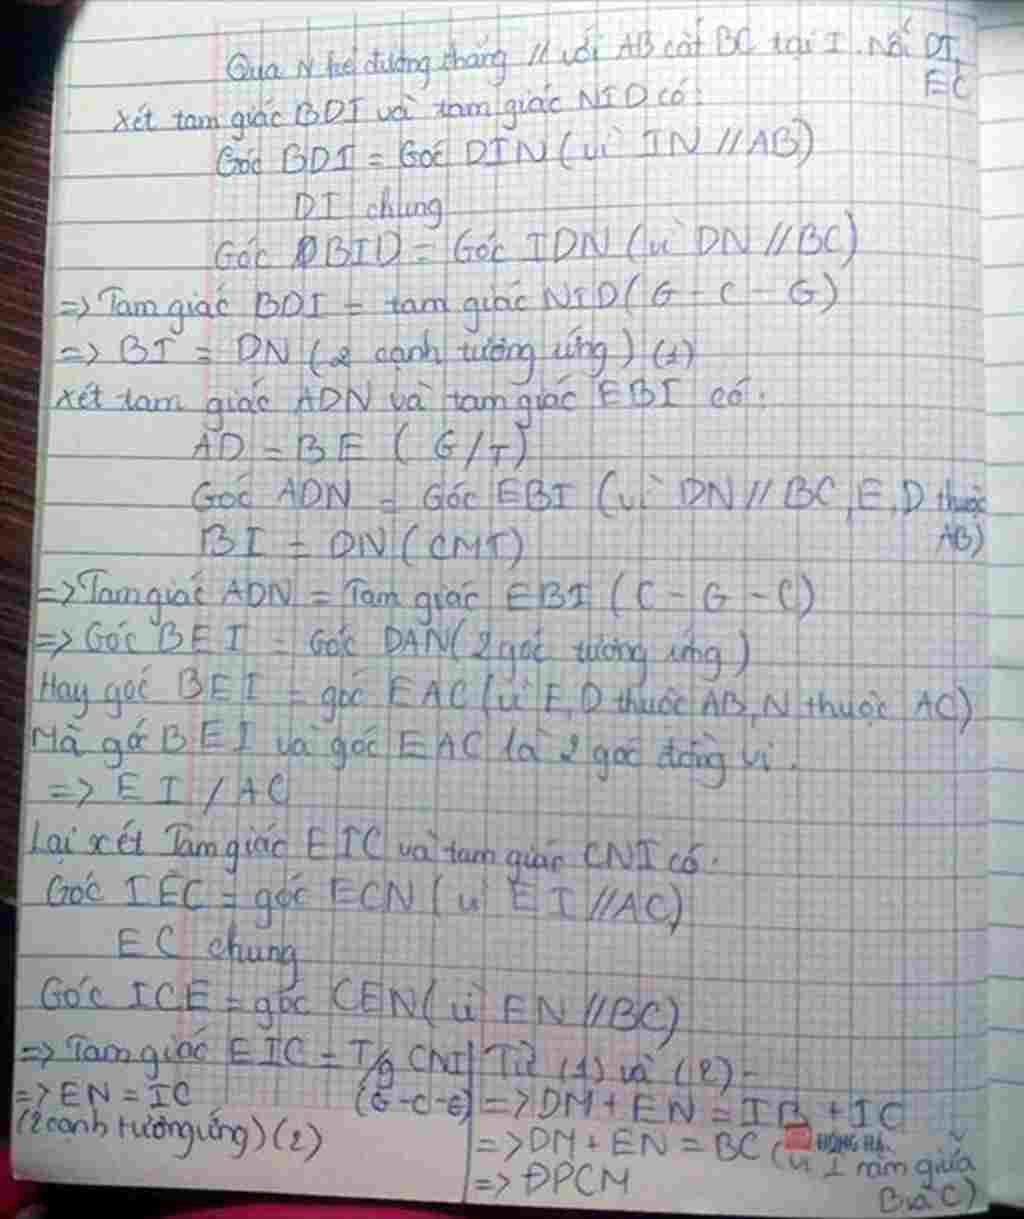 Qua N kẻ đường thẳng // với AB cắt BC tại I. Nối DI,
EC
Xét tam giác BDI và tam giác NID có:
Góc BDI = Góc DIN (vì IN // AB)
DI chung
Góc BID = Góc IDN (vì DN // BC)
=> Tam giác BDI = tam giác NID (G - C - G)
=> BI = DN (2 cạnh tương ứng) (1)
Xét tam giác ADN và tam giác EBI có:
AD = BE (G/T)
Góc ADN = Góc EBI (vì DN // BC, E, D thuộc
AB)
BI = DN (CMT)
=> Tam giác ADN = Tam giác EBI (C - G - C)
=> Góc BEI = Góc DAN (2 góc tương ứng)
Hay góc BEI = góc EAC (vì E, D thuộc AB, N thuộc AC)
Mà gó BEI và góc EAC là 2 góc đồng vị.
=> EI / AC
Lại xét Tam giác EIC và tam giác CNI có.
Góc IEC = góc ECN (vì EI // AC)
EC chung
Góc ICE = góc CEN (vì EN // BC)
=> Tam giác EIC = T/g CNI
(G-C-G)
=> EN = IC
(2 cạnh tương ứng) (2)
Từ (1) và (2)
=> DM + EN = IB + IC
=> DM + EN = BC (vì I nằm giữa
B và C)
=> ĐPCM
HỒNG HÀ